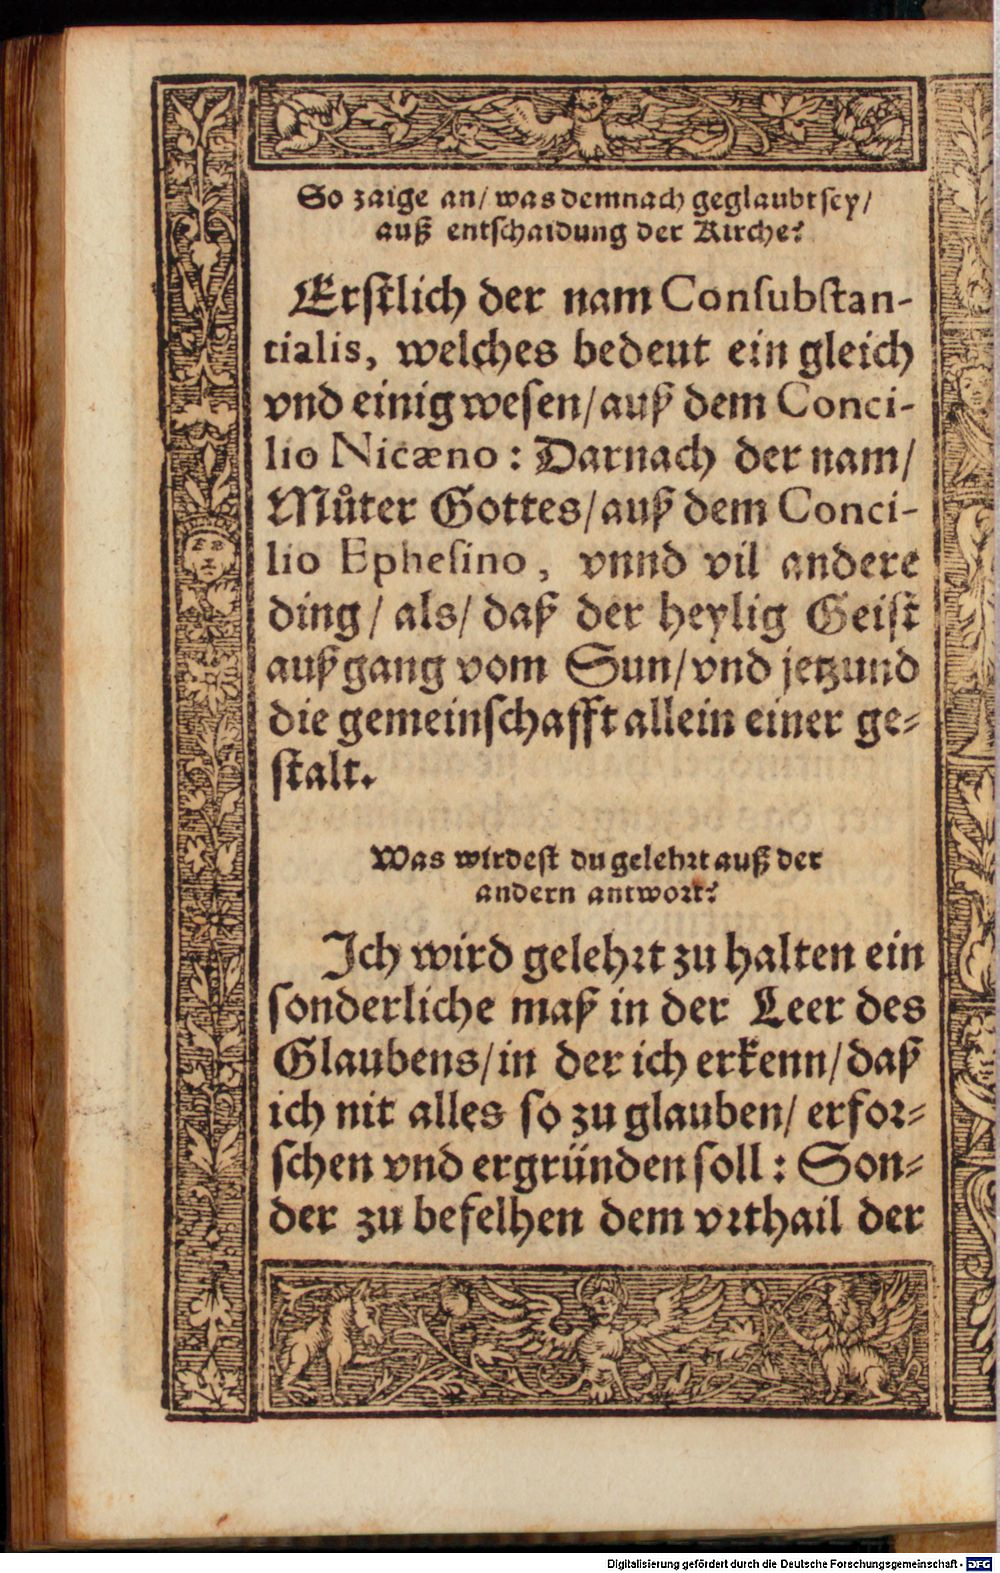 So zaige an/ was demnach geglaubt sey/
auß entschaidung der Kirche?
Erstlich der nam Consubstan-
tialis, welches bedeut ein gleich
vnd einig wesen/ auß dem Conci-
lio Nicæno: Darnach der nam/
Muͦter Gottes/ auß dem Conci-
lio Ephesino, vnnd vil andere
ding/ als/ daß der heylig Geist
außgang vom Sun/ vnd jetzund
die gemeinschafft allein einer ge-
stalt.
Was wirdest du gelehrt auß der
andern antwort?
Ich wird gelehrt zu halten ein
sonderliche maß in der Leer des
Glaubens/ in der ich erkenn/ daß
ich nit alles so zu glauben/ erfor-
schen vnd ergründen soll: Son-
der zu befelhen dem vrthail der
Digitalisierung gefördert durch die Deutsche Forschungsgemeinschaft - DFG